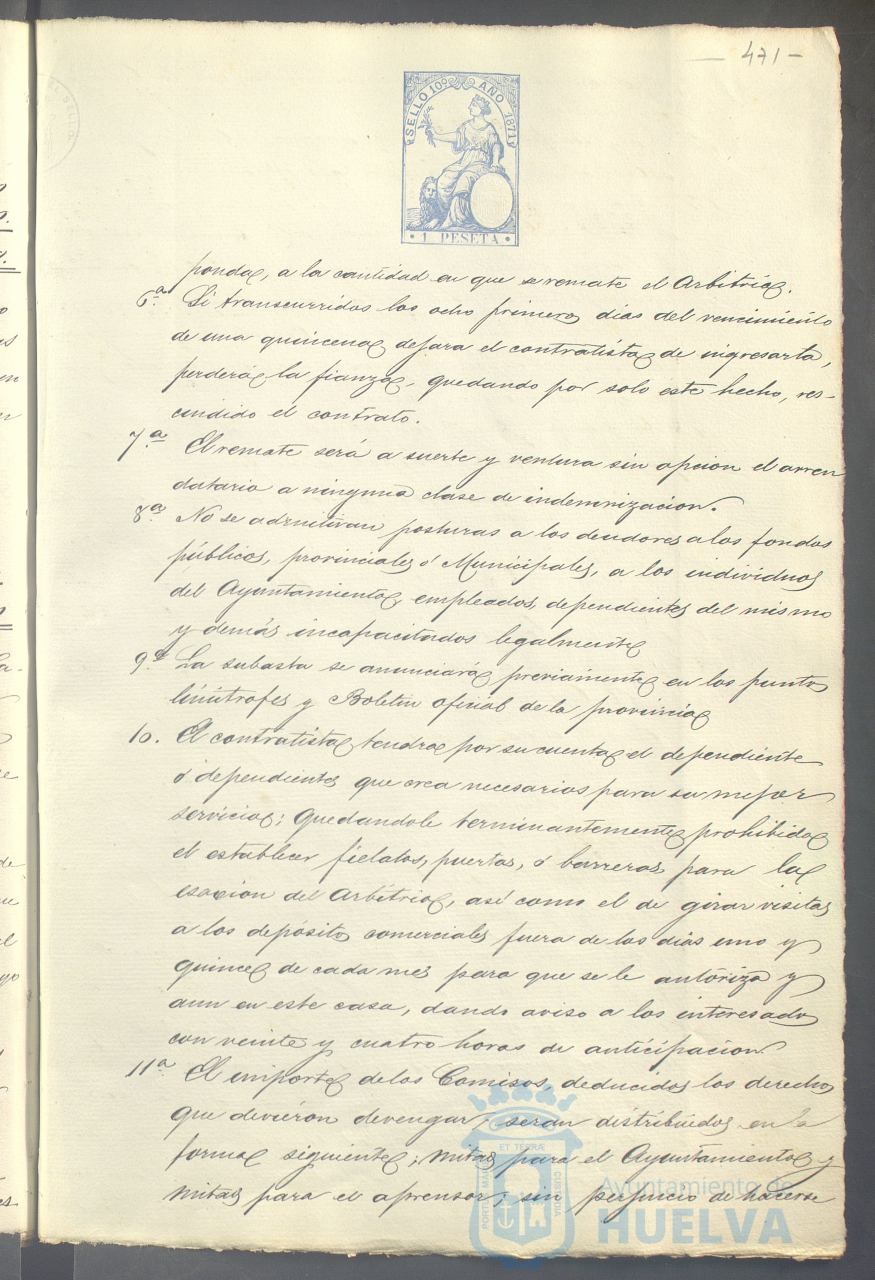 - 471 -
SELLO 10º AÑO 1871
• 1 PESETA •
ponda, a la cantidad en que se remate el Arbitrio.
6ª Si transcurridos los ocho primeros dias del vencimiento
de una quincena dejara el contratista de ingresarla,
perderá la fianza, quedando por solo este hecho, res-
cindido el contrato.
7ª El remate será a suerte y ventura sin opcion el arren
datario a ninguna clase de indemnizacion.
8ª No se admitiran posturas a los deudores a los fondos
públicos, provinciales ó Municipales, a los individuos
del Ayuntamiento, empleados, dependientes del mismo
y demás incapacitados legalmente
9ª La subasta se anunciará previamente en los puntos
limitrofes y Boletin oficial de la provincia
10. El contratista tendra por su cuenta el dependiente
ó dependientes que crea necesarios para su mejor
servicio; quedandole terminantemente prohibido
el establecer fielatos, puertas, ó barreras para la
esacion del Arbitrio, así como el de girar visitas
a los depósitos comerciales fuera de los dias uno y
quince de cada mes para que se le autoriza y
aun en este caso, dando aviso a los interesados
con veinte y cuatro horas de anticipacion.
11ª El importe de los Comisos, deducidos los derechos
que devieron devengar, seran distribuidos en la
forma siguiente; mitad para el Ayuntamiento y
mitad para el aprensor; sin perjuicio de hacerse
PORTUS MARIS ET TERRÆ CUSTODIA
Ayuntamiento de
HUELVA